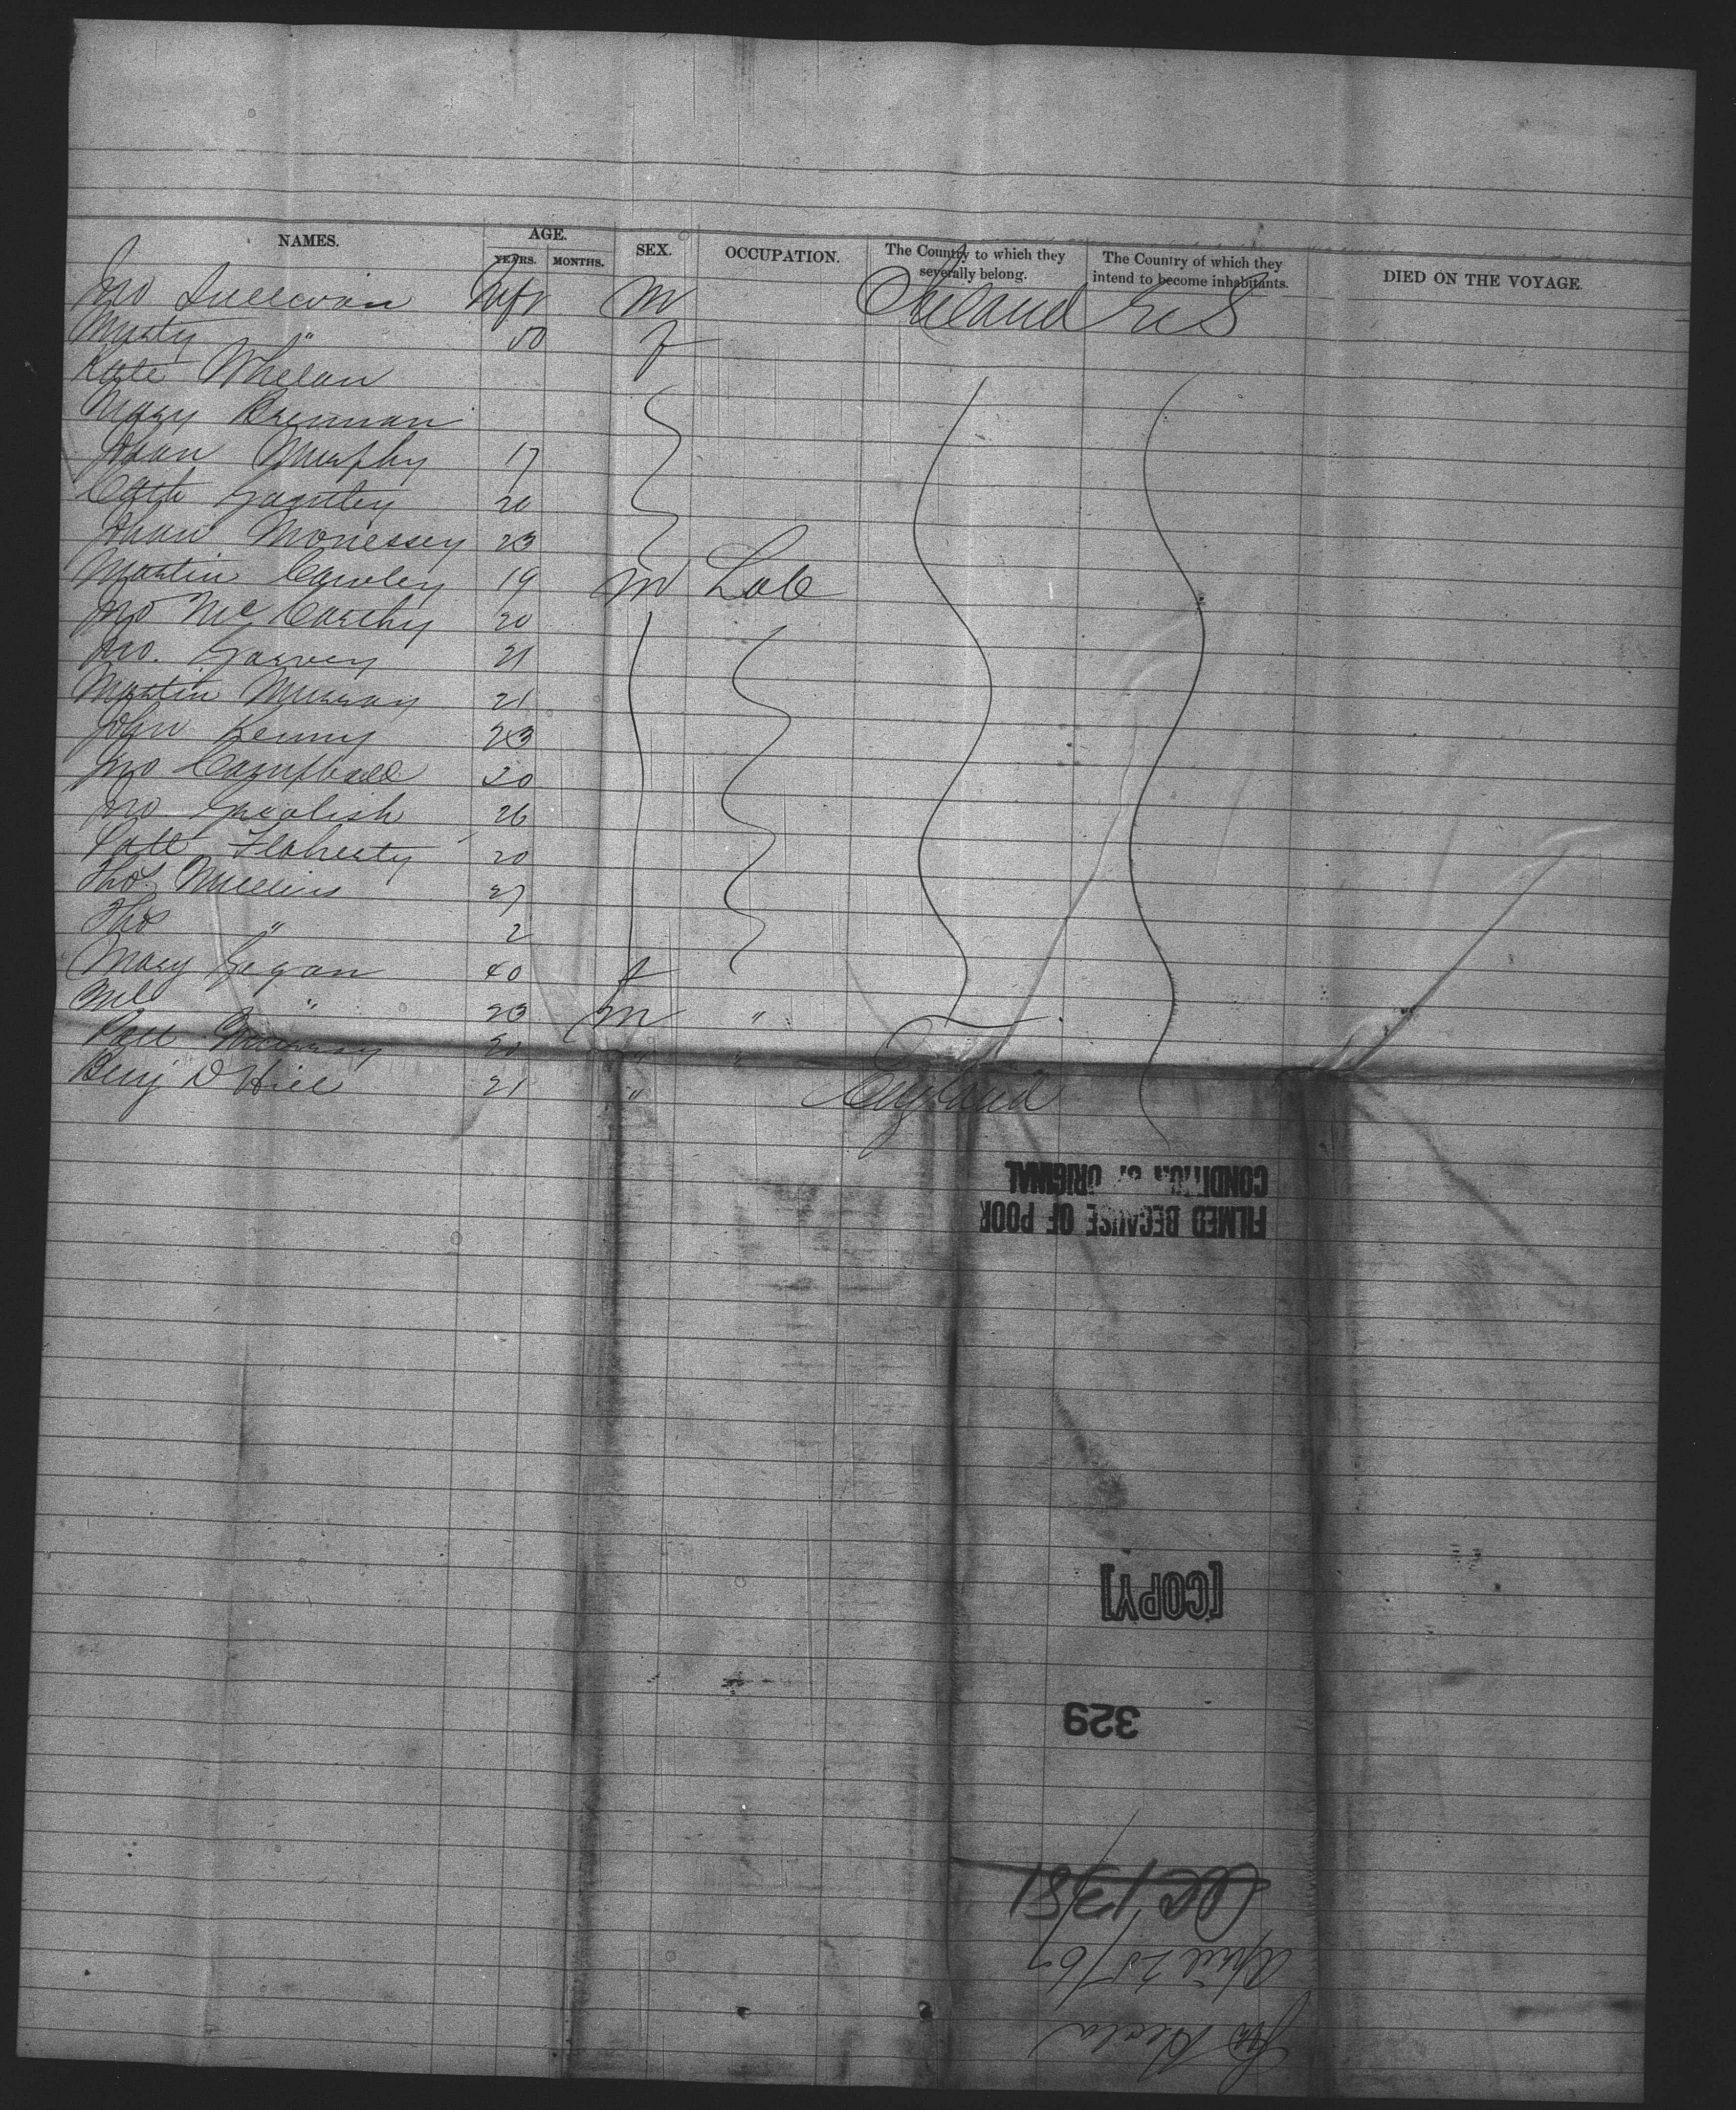 NAMES. AGE. SEX. OCCUPATION. The Country to which they severally belong. The Country of which they intend to become inhabitants. DIED ON THE VOYAGE.
YEARS. MONTHS.
Jno Sullivan Inft M Ireland U S
50 f
Kate Whelan
Mary Brennan
Murphy 17
Cath 20
23
Martin Cawley 19 M Lab
Jno McCarthy 20
Jno. Garvey 21
Martin Murray 21
John Kenny 23
Jno Campbell 20
Jno 26
Patt Flaherty 20
Thos Mullins 27
Thos " 2
Mary Gegan 40 f
Ml " 23 M "
Patt Murray 20 " "
Benj D Hill 21 " England
FILMED BECAUSE OF POOR
CONDITION OF ORIGINAL
[COPY]
329
April 25/67